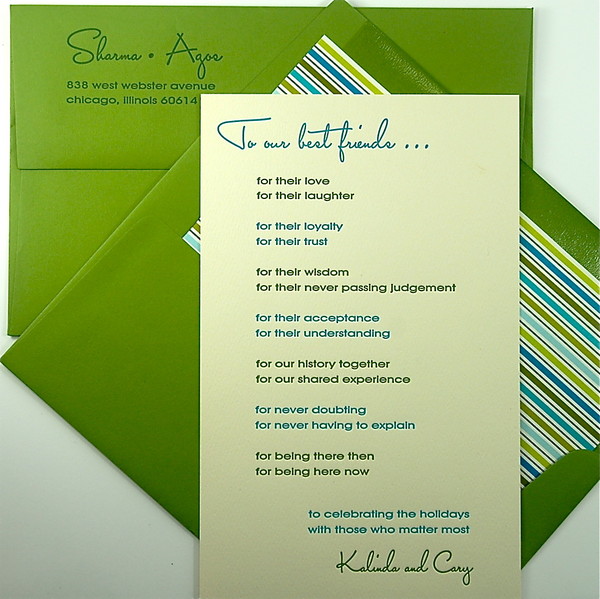 Sharma • Agos
838 west webster avenue
chicago, illinois 60614
To our best friends ...
for their love
for their laughter
for their loyalty
for their trust
for their wisdom
for their never passing judgement
for their acceptance
for their understanding
for our history together
for our shared experience
for never doubting
for never having to explain
for being there then
for being here now
to celebrating the holidays
with those who matter most
Kalinda and Cary